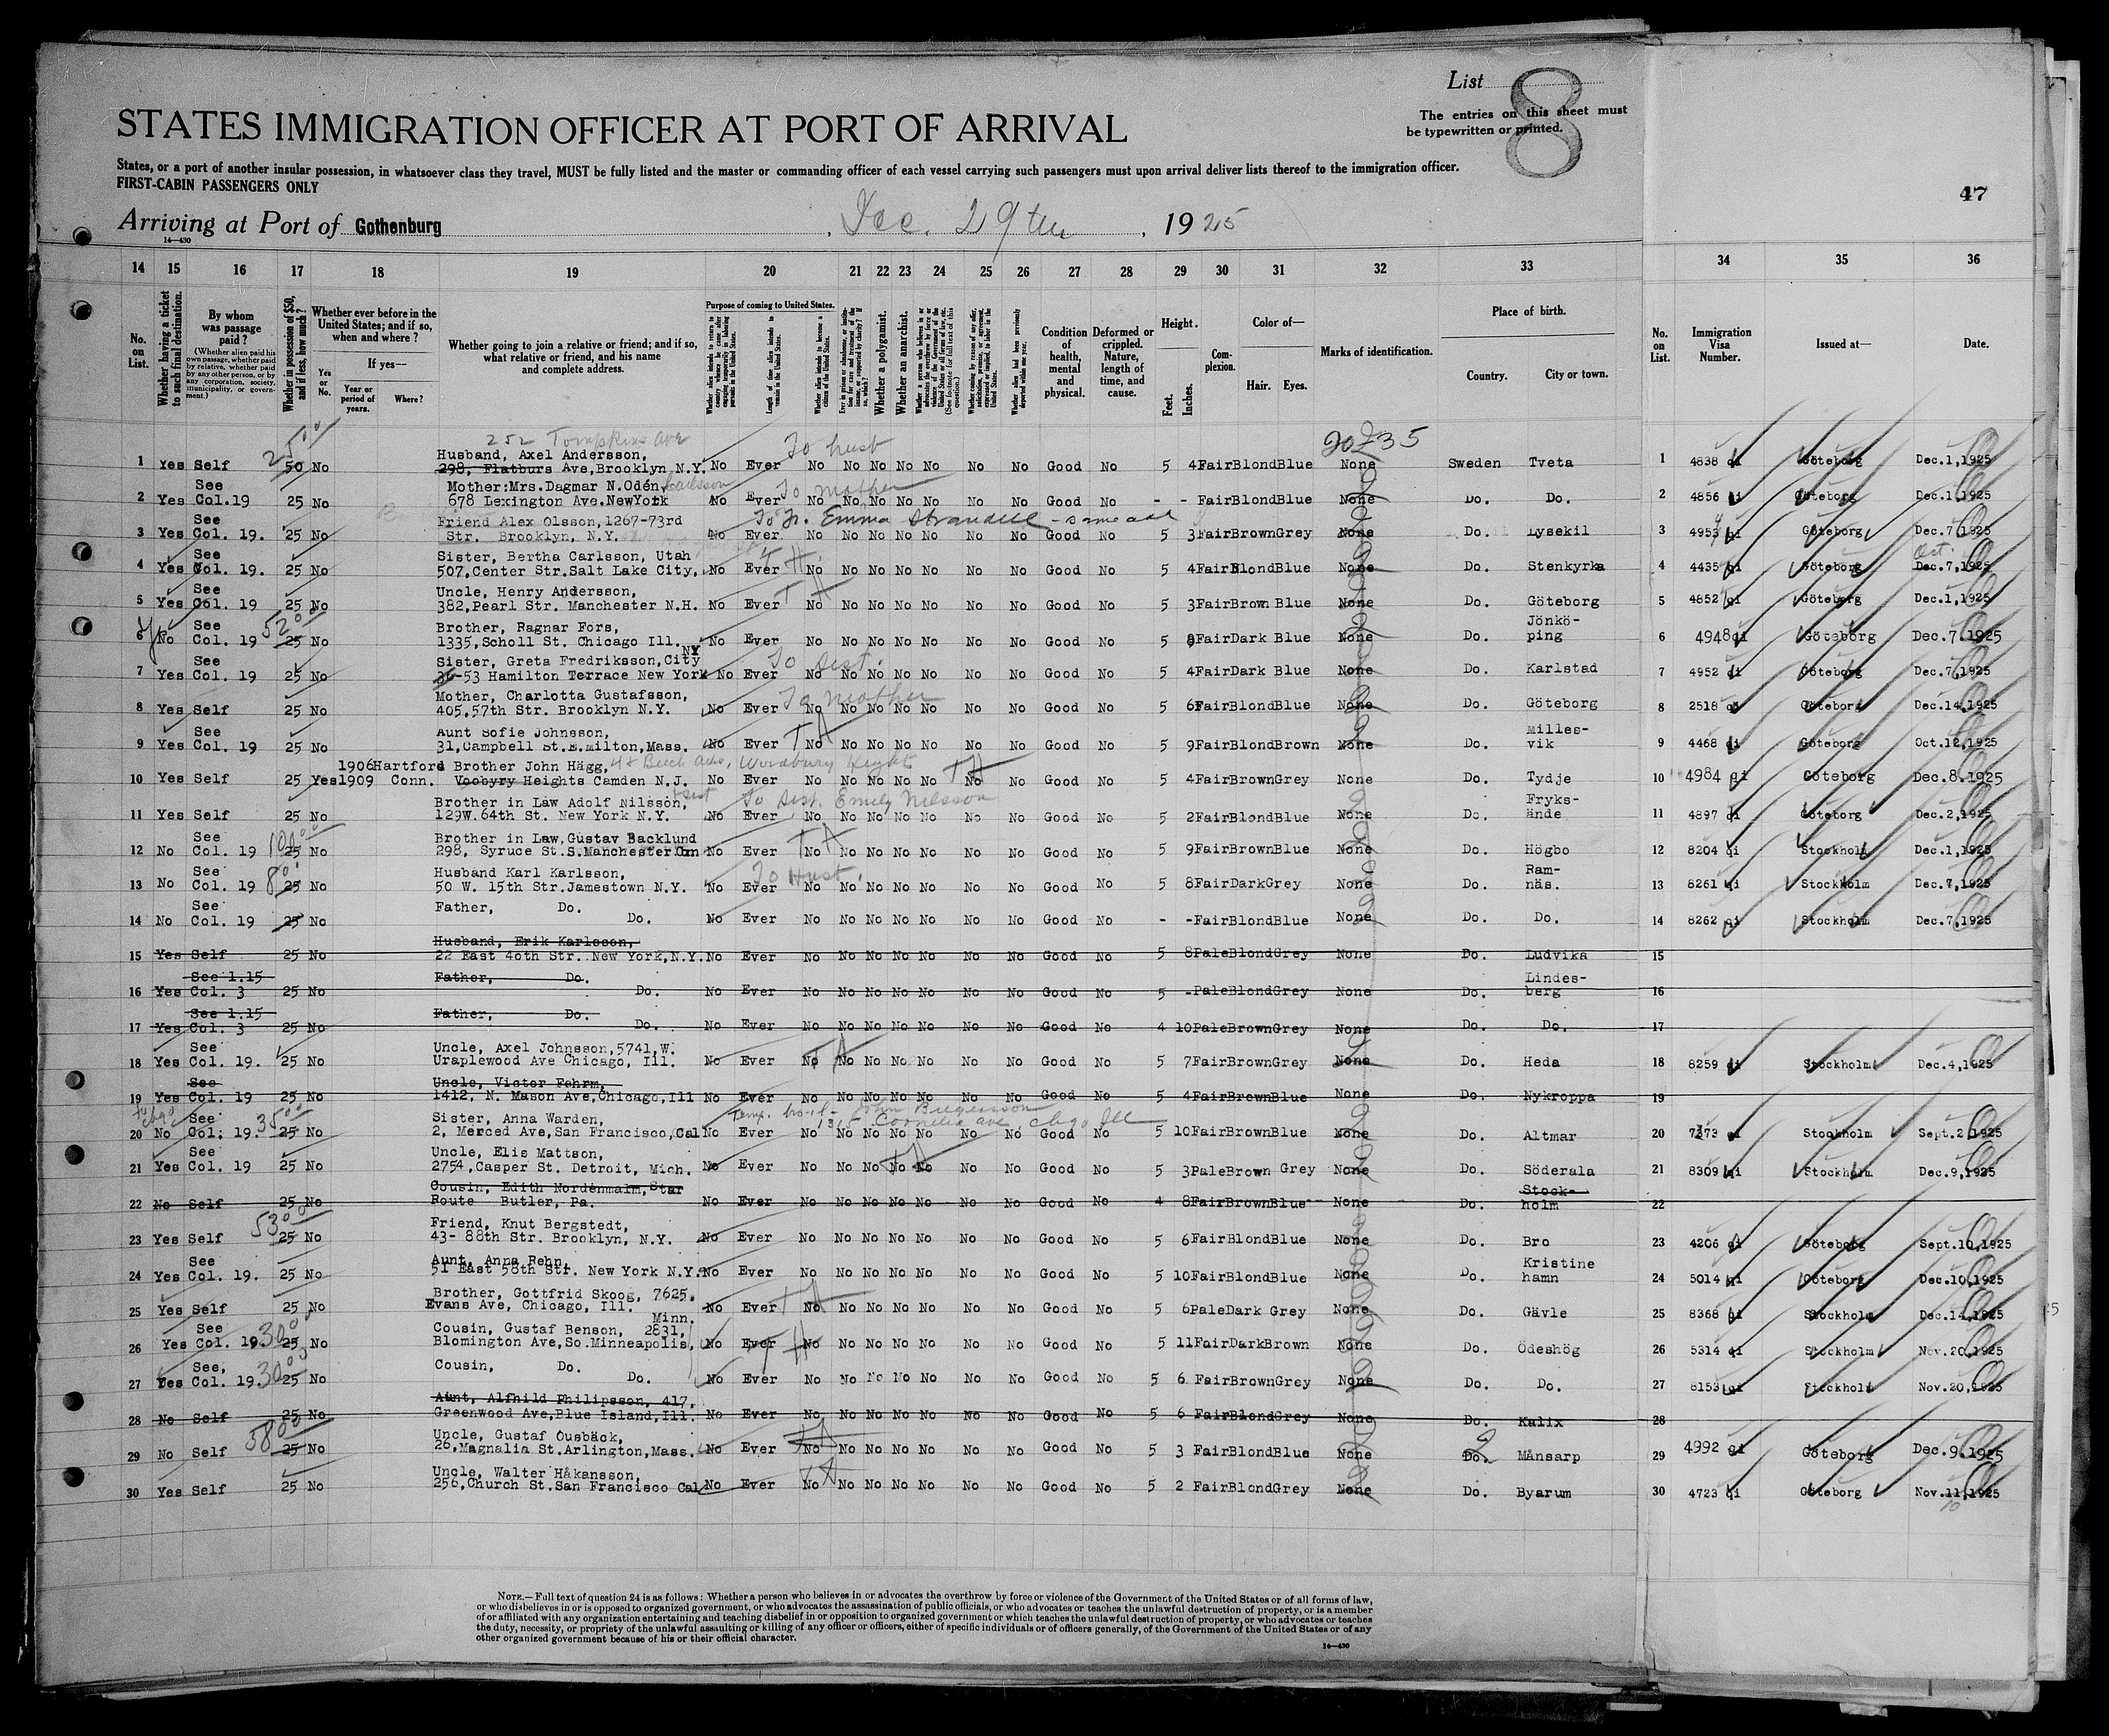 List 8
The entries on this sheet must
be typewritten or printed.
STATES IMMIGRATION OFFICER AT PORT OF ARRIVAL
States, or a port of another insular possession, in whatsoever class they travel, MUST be fully listed and the master or commanding officer of each vessel carrying such passengers must upon arrival deliver lists thereof to the immigration officer.
FIRST-CABIN PASSENGERS ONLY
47
Arriving at Port of Gothenburg, Dec. 29th, 1925
14—430
14 15 16 17 18 19 20 21 22 23 24 25 26 27 28 29 30 31 32 33 34 35 36
No. on List.
Whether having a ticket to such final destination.
By whom was passage paid?
(Whether alien paid his own passage, whether paid by relative, whether paid by any other person, or by any corporation, society, municipality, or government.)
Whether in possession of $50, and if less, how much?
Whether ever before in the United States; and if so, when and where?
If yes—
Yes or No.
Year or period of years.
Where?
Whether going to join a relative or friend; and if so, what relative or friend, and his name and complete address.
Purpose of coming to United States.
Whether alien intends to return to country whence he came after engaging temporarily in laboring pursuits in the United States.
Length of time alien intends to remain in the United States.
Whether alien intends to become a citizen of the United States.
Whether a polygamist.
Whether an anarchist.
Condition of health, mental and physical.
Deformed or crippled. Nature, length of time, and cause.
Height.
Feet.
Inches.
Complexion.
Color of—
Hair.
Eyes.
Marks of identification.
Place of birth.
Country.
City or town.
No. on List.
Immigration Visa Number.
Issued at—
Date.
25 00 252 Tompkins Ave To hust 20 £ 35
Husband, Axel Andersson,
1 Yes Self 50 No 298, Flatburs Ave,Brooklyn N.Y. No Ever No No No No No No No Good No 5 4 Fair Blond Blue None Sweden Tveta 1 4838 qi Göteborg Dec.1,1925
See Mother:Mrs.Dagmar N.Odén, Carlsson To mother
2 Yes Col.19 25 No 678 Lexington Ave.NewYork No Ever No No No No No No No Good No - - Fair Blond Blue None Do. Do. 2 4856 qi Göteborg Dec.1,1925
See Friend Alex Olsson,1267-73rd To fr. Emma Strandell - same add
3 Yes Col. 19. 25 No Str. Brooklyn, N.Y. No Ever No No No No No No No Good No 5 3 Fair Brown Grey None Do. Lysekil 3 4953 qi Göteborg Dec.7,1925
See Sister, Bertha Carlsson, Utah Oct.
4 Yes Col. 19. 25 No 507,Center Str.Salt Lake City, No Ever No No No No No No No Good No 5 4 Fair Blond Blue None Do. Stenkyrka 4 4435 qi Göteborg Dec.7,1925
See Uncle, Henry Andersson,
5 Yes Col. 19 25 No 382,Pearl Str. Manchester N.H. No Ever No No No No No No No Good No 5 3 Fair Brown Blue None Do. Göteborg 5 4852 qi Göteborg Dec.1,1925
See 52 00 Brother, Ragnar Fors, Jönkö-
6 No Col. 19 25 No 1335,Scholl St. Chicago Ill. No Ever No No No No No No No Good No 5 8 Fair Dark Blue None Do. ping 6 4948 qi Göteborg Dec.7.1925
See Sister, Greta Fredriksson,City NY To Sist.
7 Yes Col. 19 25 No 36-53 Hamilton Terrace New York No Ever No No No No No No No Good No 5 4 Fair Dark Blue None Do. Karlstad 7 4952 qi Göteborg Dec.7,1925
Mother, Charlotta Gustafsson, To mother
8 Yes Self 25 No 405,57th Str. Brooklyn N.Y. No Ever No No No No No No No Good No 5 6 Fair Blond Blue None Do. Göteborg 8 2518 qi Göteborg Dec.14,1925
See Aunt Sofie Johnsson, Milles-
9 Yes Col. 19 25 No 31,Campbell St.E.Milton,Mass. No Ever No No No No No No No Good No 5 9 Fair Blond Brown None Do. vik 9 4468 qi Göteborg Oct.12,1925
1906 Hartford Brother John Hägg, 48 Beech Ave, Woodbury Height
10 Yes Self 25 Yes 1909 Conn. Voobyry Heights Camden N.J. No Ever No No No No No No No Good No 5 4 Fair Brown Grey None Do. Tydje 10 4984 qi Göteborg Dec.8.1925
Brother in Law Adolf Nilsson, + sist To Sist. Emily Nilsson Fryks-
11 Yes Self 25 No 129W.64th St. New York N.Y. No Ever No No No No No No No Good No 5 2 Fair Blond Blue None Do. ände 11 4897 qi Göteborg Dec.2,1925
See 100 00 Brother in Law,Gustav Backlund
12 No Col. 19 25 No 298, Syruce St.S.Manchester.Con No Ever No No No No No No No Good No 5 9 Fair Brown Blue None Do. Högbo 12 8204 qi Stockholm Dec.1,1925
See 80 Husband Karl Karlsson, To Hust. Ram-
13 No Col. 19 25 No 50 W. 15th Str.Jamestown N.Y. No Ever No No No No No No No Good No 5 8 Fair Dark Grey None Do. näs. 13 8261 qi Stockholm Dec.7,1925
See Father, Do.
14 No Col. 19 25 No Do. No Ever No No No No No No No Good No - - Fair Blond Blue None Do. Do. 14 8262 qi Stockholm Dec.7,1925
Husband, Erik Karlsson,
15 Yes Self 25 No 22 East 40th Str. New York,N.Y. No Ever No No No No No No No Good No 5 8 Pale Blond Grey None Do. Ludvika 15
See 1.15 Father, Do. Lindes-
16 Yes Col. 3 25 No Do. No Ever No No No No No No No Good No 5 - Pale Blond Grey None Do. berg 16
See 1.15 Father, Do.
17 Yes Col. 3 25 No Do. No Ever No No No No No No No Good No 4 10 Pale Brown Grey None Do. Do. 17
See Uncle, Axel Johnsson,5741,W.
18 Yes Col. 19. 25 No Uraplewood Ave Chicago, Ill. No Ever No No No No No No No Good No 5 7 Fair Brown Grey None Do. Heda 18 8259 qi Stockholm Dec.4,1925
See Uncle, Victor Fehrm,
19 Yes Col. 19 25 No 1412, N. Mason Ave,Chicago,Ill No Ever No No No No No No No Good No 5 4 Fair Brown Blue None Do. Nykroppa 19
to chgo See 35 00 Sister, Anna Warden, Temp. bro-il - John 1315 Cornelia ave, chgo, Ill
20 No Col. 19. 25 No 2, Merced Ave,San Francisco,Cal No Ever No No No No No No No Good No 5 10 Fair Brown Blue None Do. Altmar 20 7373 qi Stockholm Sept.2,1925
See Uncle, Elis Mattson,
21 Yes Col. 19 25 No 2754,Casper St. Detroit, Mich. No Ever No No No No No No No Good No 5 3 Pale Brown Grey None Do. Söderala 21 8309 qi Stockholm Dec.9,1925
Cousin, Edith Nordenmalm, Star Stock-
22 No Self 25 No Route Butler, Pa. No Ever No No No No No No No Good No 4 8 Fair Brown Blue None Do. holm 22
53 00 Friend, Knut Bergstedt,
23 Yes Self 25 No 43- 88th Str. Brooklyn, N.Y. No Ever No No No No No No No Good No 5 6 Fair Blond Blue None Do. Bro 23 4206 qi Göteborg Sept.10,1925
See Aunt, Anna Rehn, Kristine
24 Yes Col. 19. 25 No 51 East 58th Str. New York N.Y. No Ever No No No No No No No Good No 5 10 Fair Blond Blue None Do. hamn 24 5014 qi Göteborg Dec.10,1925
Brother, Gottfrid Skoog, 7625,
25 Yes Self 25 No Evans Ave, Chicago, Ill. No Ever No No No No No No No Good No 5 6 Pale Dark Grey None Do. Gävle 25 8368 qi Stockholm Dec.14,1925
Minn.
See 30 00 Cousin, Gustaf Benson, 2831,
26 Yes Col. 19. 25 No Blomington Ave,So.Minneapolis, No Ever No No No No No No No Good No 5 11 Fair Dark Brown None Do. Ödeshög 26 5314 qi Stockholm Nov.20,1925
See, 30 00 Cousin, Do.
27 Yes Col. 19. 25 No Do. No Ever No No No No No No No Good No 5 6 Fair Brown Grey None Do. Do. 27 8153 qi Stockholm Nov.20,1925
Aunt, Alfhild Philipsson, 417,
28 No Self 25 No Greenwood Ave,Blue Island,Ill. No Ever No No No No No No No Good No 5 6 Fair Blond Grey None Do. Kalix 28
58 00 Uncle, Gustaf Ousbäck,
29 No Self 25 No 26,Magnalia St.Arlington,Mass. No Ever No No No No No No No Good No 5 3 Fair Blond Blue None Do. Månsarp 29 4992 qi Göteborg Dec.9.1925
Uncle, Walter Håkansson,
30 Yes Self 25 No 256,Church St.San Francisco Cal No Ever No No No No No No No Good No 5 2 Fair Blond Grey None Do. Byarum 30 4723 qi Göteborg Nov.11,1925
10
NOTE.—Full text of question 24 is as follows: Whether a person who believes in or advocates the overthrow by force or violence of the Government of the United States or of all forms of law,
or who disbelieves in or is opposed to organized government, or who advocates the assassination of public officials, or who advocates or teaches the unlawful destruction of property, or is a member
of or affiliated with any organization entertaining and teaching disbelief in or opposition to organized government or which teaches the unlawful destruction of property, or who advocates or teaches
the duty, necessity, or propriety of the unlawful assaulting or killing of any officer or officers, either of specific individuals or of officers generally, of the Government of the United States or of any
other organized government because of his or their official character.
14—430